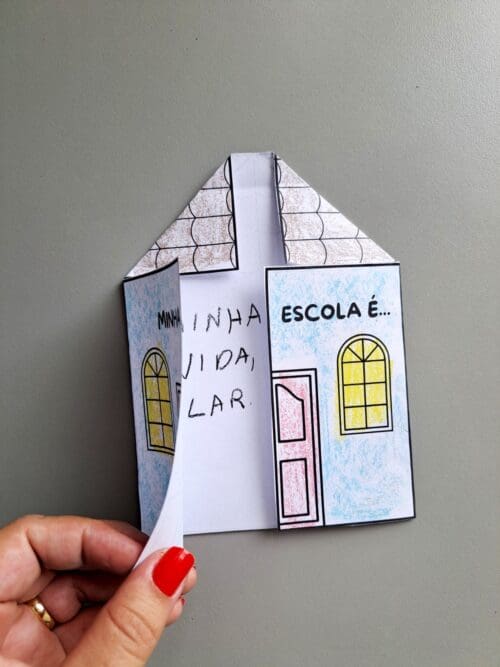 MINHA ESCOLA É...
INHA
VIDA,
LAR.